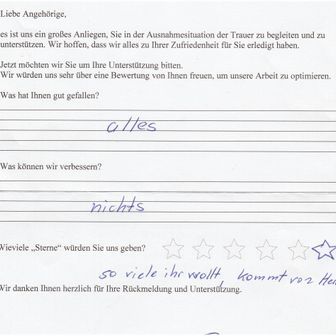 Liebe Angehörige,
es ist uns ein großes Anliegen, Sie in der Ausnahmesituation der Trauer zu begleiten und zu
unterstützen. Wir hoffen, dass wir alles zu Ihrer Zufriedenheit für Sie erledigt haben.
Jetzt möchten wir Sie um Ihre Unterstützung bitten.
Wir würden uns sehr über eine Bewertung von Ihnen freuen, um unsere Arbeit zu optimieren.
Was hat Ihnen gut gefallen?
alles
Was können wir verbessern?
nichts
Wieviele „Sterne“ würden Sie uns geben?
so viele ihr wollt, kommt von
Wir danken Ihnen herzlich für Ihre Rückmeldung und Unterstützung.